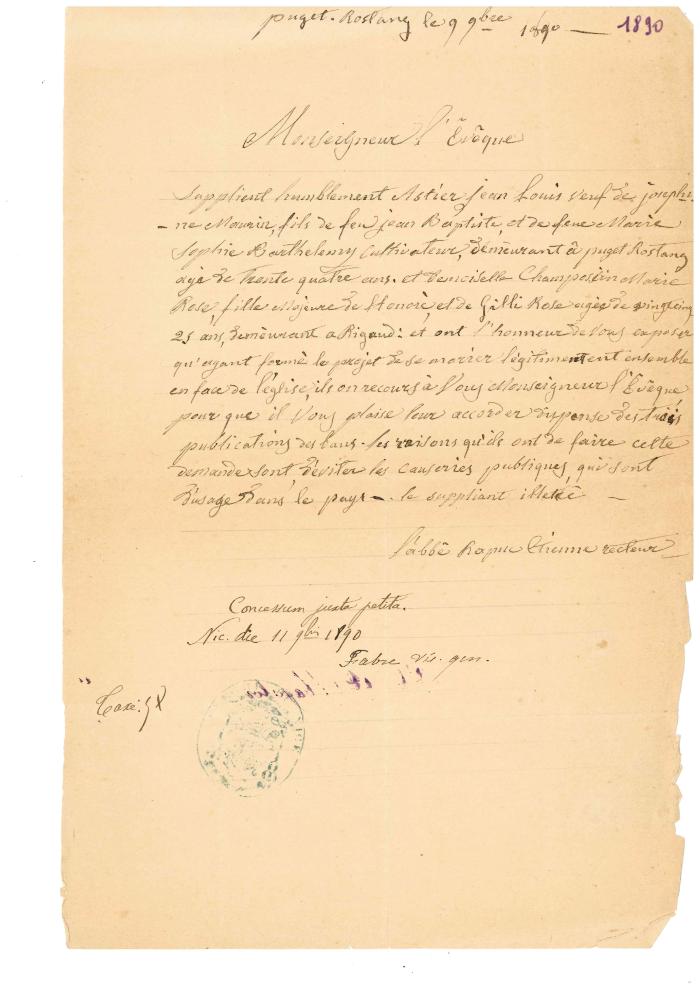 puget-Rostang le 9 9bre 1890 — 1890
Monseigneur l'Évêque
Supplient humblement Astier jean Louis veuf de josephi-
-ne Maurin, fils de feu jean Baptiste, et de feue Marie
Sophie Barthelemy Cultivateur, demeurant à puget Rostang
agé de trente quatre ans. et Demoiselle Champossin Marie
Rose, fille Majeure de Honoré, et de Gilli Rose agés de vingtcinq
25 ans, demeurant a Rigaud: et ont l'honneur de Vous exposer
qu'ayant formé le projet de se marier légitimentent ensemble
en face de l'église, ils on recours à Vous Monseigneur l'Evêque
pour que il Vous plaise leur accorder dispense des trois
publications des bans. les raisons qu'ils ont de faire cette
demande sont d'éviter les causeries publiques, qui sont
d'usage dans le pays — le suppliant illetré —
l'abbé Etienne recteur
Concessum juxta petita.
Nic. die 11 9bris 1890
Fabre vic. gen.
Taxe: 5